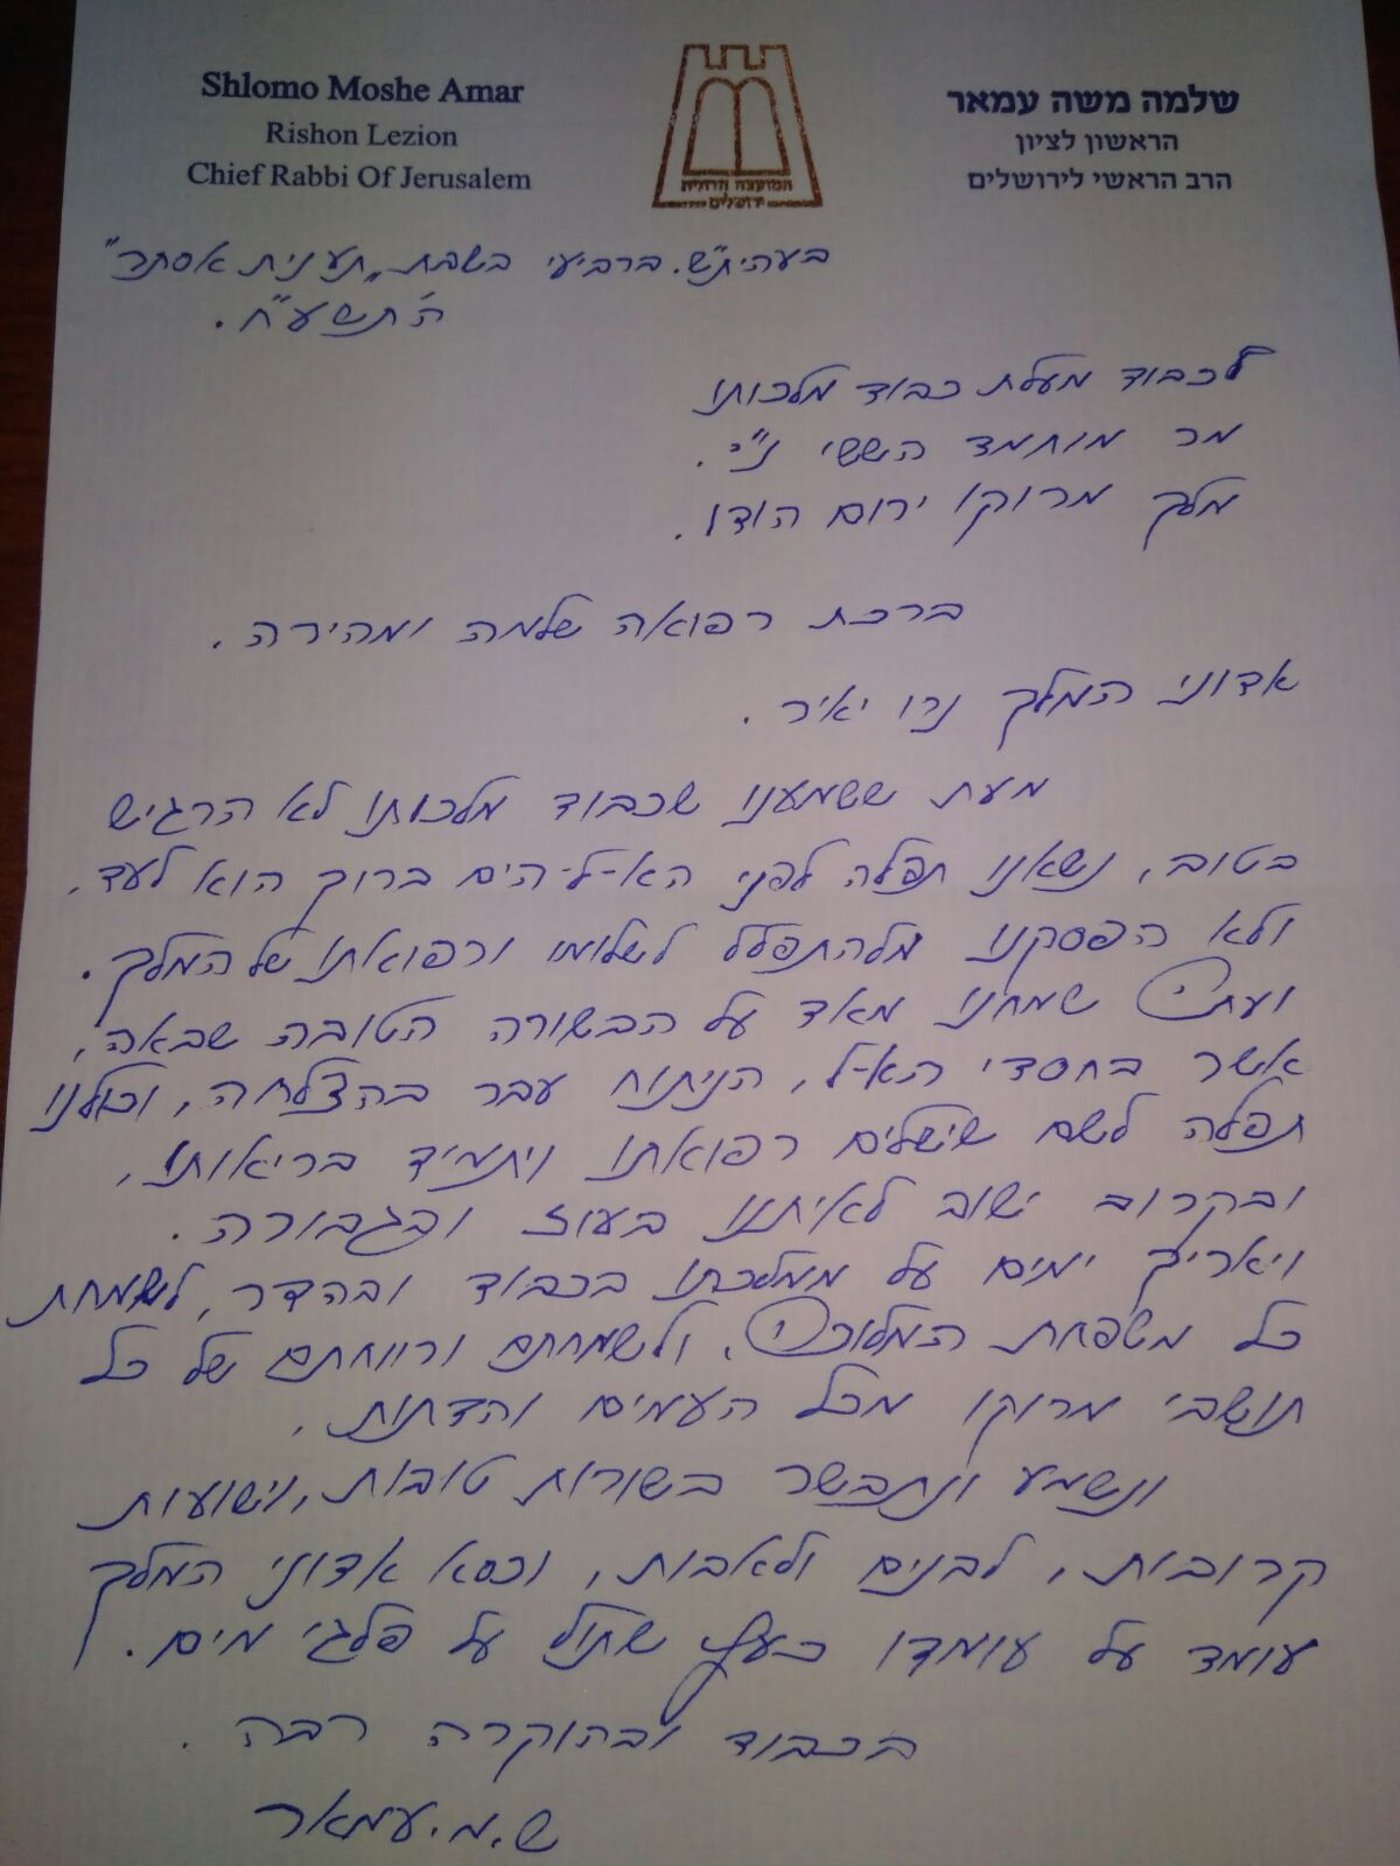 Shlomo Moshe Amar
Rishon Lezion
Chief Rabbi Of Jerusalem
שלמה משה עמאר
הראשון לציון
הרב הראשי לירושלים
המועצה הדתית
ירושלים
בעהית"ש. ברביעי בשבת "תענית אסתר"
ה'תשע"ח.
לכבוד מעלת כבוד מלכותו
מר מוחמד הששי נ"י.
מלך מרוקו ירום הודו.
ברכת רפואה שלמה ומהירה.
אדוני המלך נרו יאיר.
מעת ששמענו שכבוד מלכותו לא הרגיש
בטוב, נשאנו תפלה לפני הא-ל-הים ברוך הוא לעד,
ולא הפסקנו מלהתפלל לשלומו ורפואתו של המלך.
ועתה שמחנו מאד על הבשורה הטובה שבאה,
אשר בחסדי הא-ל, הניתוח עבר בהצלחה, וכולנו
תפלה לשם שישלים רפואתו ויתמיד בריאותו,
ובקרוב ישוב לאיתנו בעוז ובגבורה.
ויאריך ימים על ממלכתו בכבוד ובהדר, לשמחת
כל משפחת המלוכה, ולשמחתם ורווחתם של כל
תושבי מרוקו מכל העמים והדתות,
ונשמע ונתבשר בשורות טובות, וישועות
קרובות, לבנים ולאבות, וכסא אדוני המלך
עומד על עומדו כעץ שתול על פלגי מים.
בכבוד ובהוקרה רבה.
ש.מ.עמאר